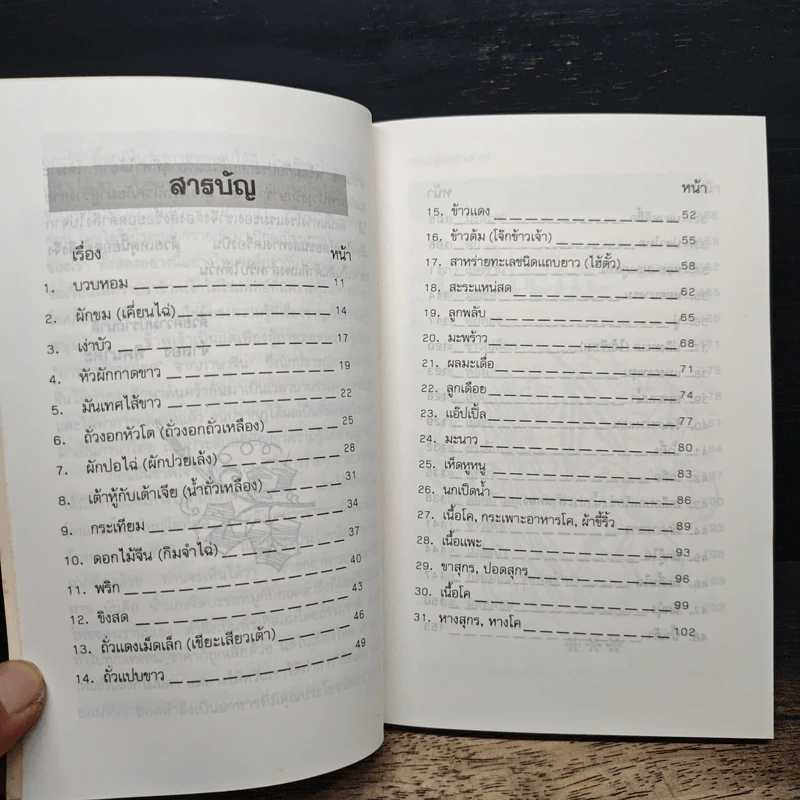 สารบัญ
เรื่อง หน้า
1. บวบหอม 11
2. ผักขม (เคี่ยนไฉ่) 14
3. เง่าบัว 17
4. หัวผักกาดขาว 19
5. มันเทศไส้ขาว 22
6. ถั่วงอกหัวโต (ถั่วงอกถั่วเหลือง) 25
7. ผักปอไฉ่ (ผักปวยเล้ง) 28
8. เต้าหู้กับเต้าเจีย (น้ำถั่วเหลือง) 31
9. กระเทียม 34
10. ดอกไม้จีน (กิมจำไฉ่) 37
11. พริก 40
12. ขิงสด 43
13. ถั่วแดงเม็ดเล็ก (เซียะเสียวเต้า) 46
14. ถั่วแปบขาว 49
หน้า
15. ข้าวแดง 52
16. ข้าวต้ม (โจ๊กข้าวเจ้า) 55
17. สาหร่ายทะเลชนิดแถบยาว (ไฮ้ตั้ว) 58
18. สะระแหน่สด 62
19. ลูกพลับ 65
20. มะพร้าว 68
21. ผลมะเดื่อ 71
22. ลูกเดือย 74
23. แอ๊ปเปิ้ล 77
24. มะนาว 80
25. เห็ดหูหนู 83
26. นกเป็ดน้ำ 86
27. เนื้อโค, กระเพาะอาหารโค, ผ้าขี้ริ้ว 89
28. เนื้อแพะ 93
29. ขาสุกร, ปอดสุกร 96
30. เนื้อโค 99
31. หางสุกร, หางโค 102